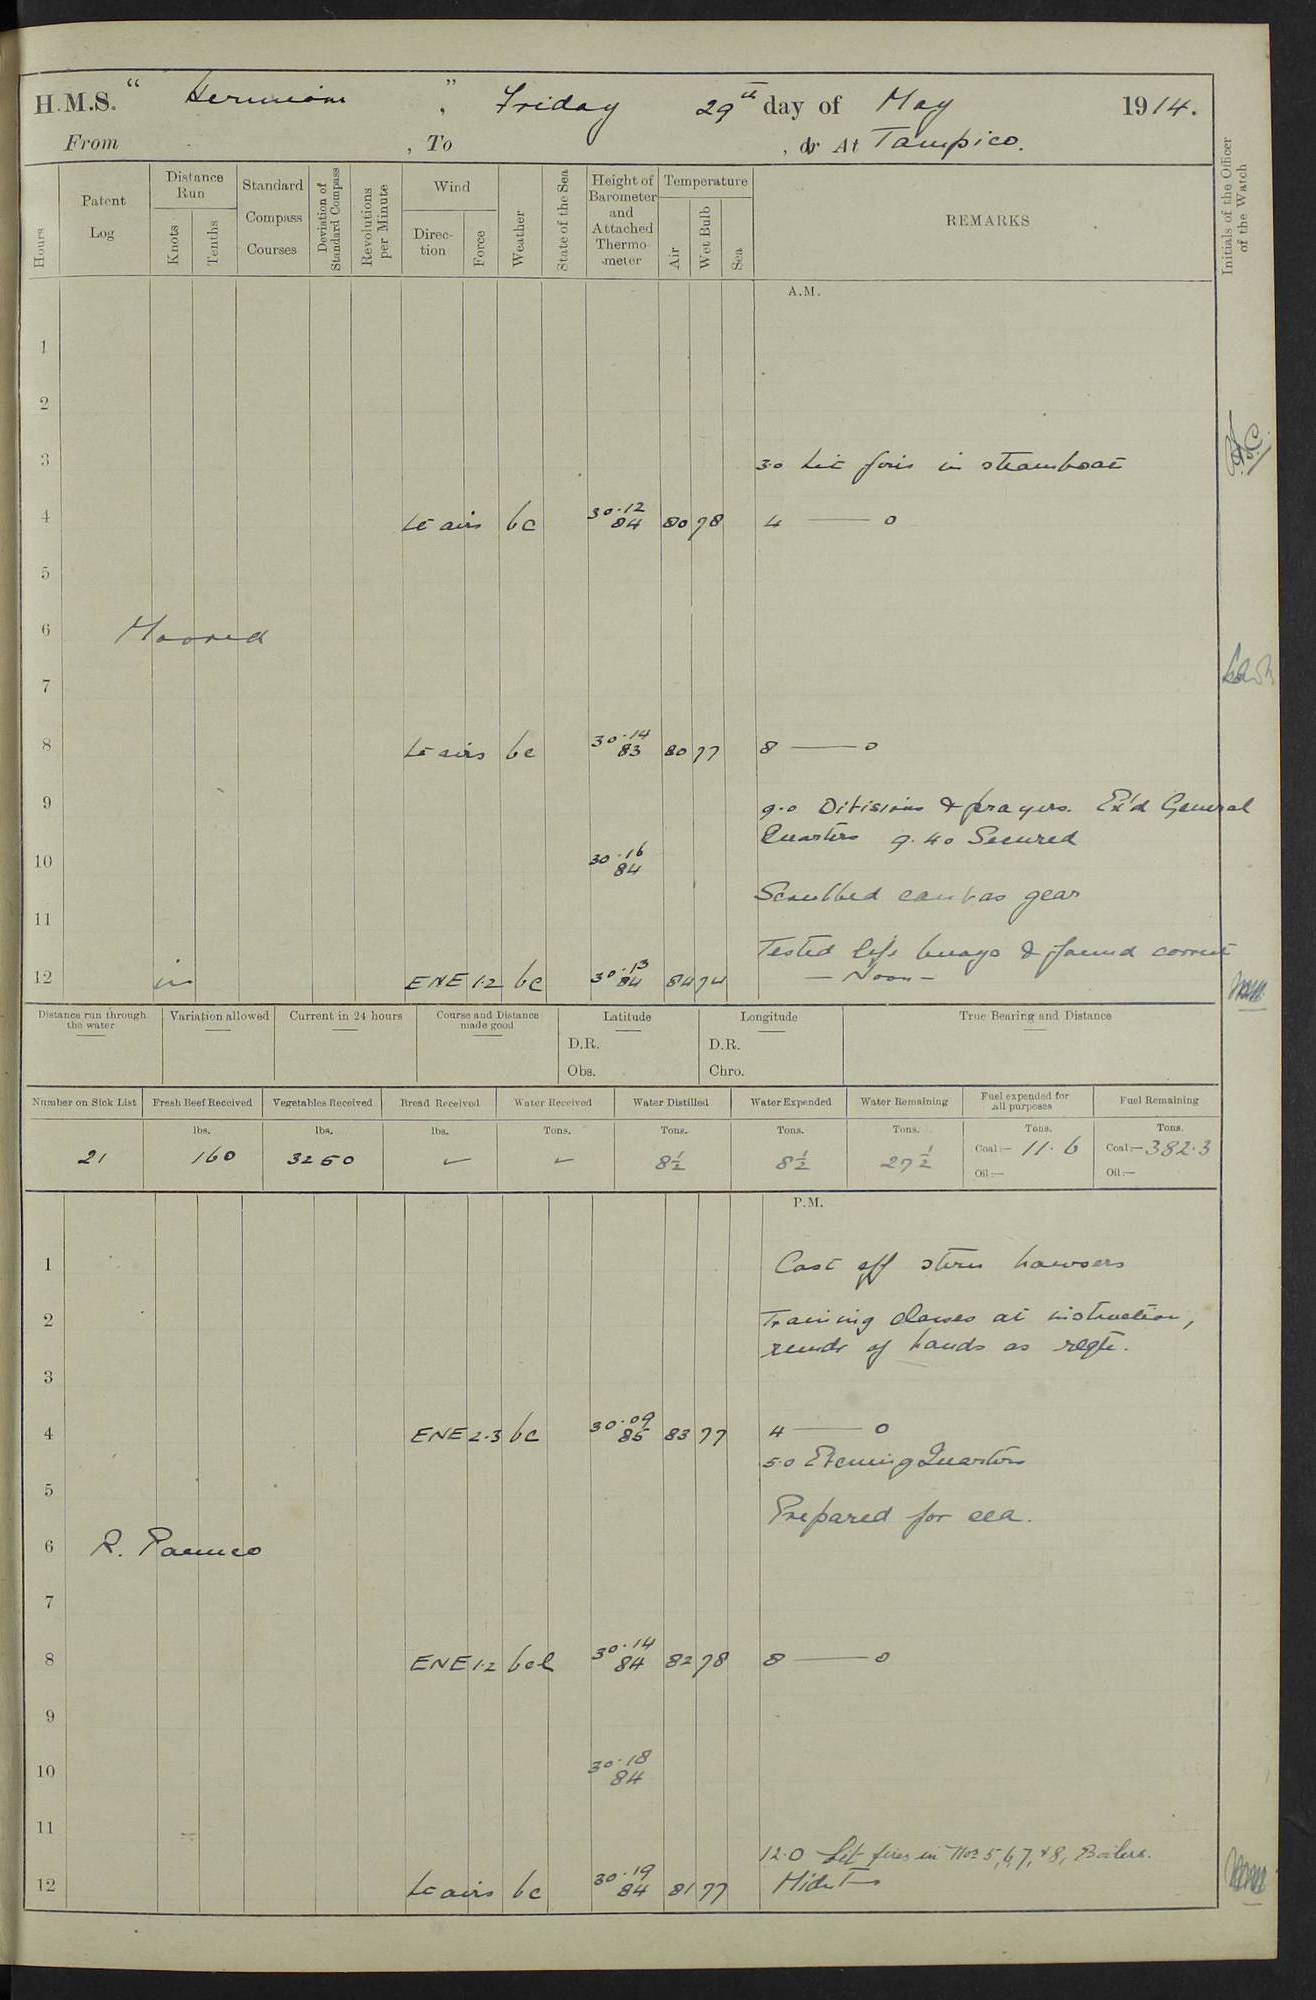 H.M.S. " Hermione " , Friday 29th day of May 1914.
From , To , or At Tampico.
Hours
Patent Log
Distance Run
Knots
Tenths
Standard Compass Courses
Deviation of Standard Compass
Revolutions per Minute
Wind
Direction
Force
Weather
State of the Sea
Height of Barometer and Attached Thermometer
Temperature
Air
Wet Bulb
Sea
REMARKS
Initials of the Officer of the Watch
A.M.
1
2
3 3.0 Lit fires in steamboat
4 Lt airs bc 30.12 84 80 78 4 — 0
5
6 Moored
7
8 Lt airs bc 30.14 83 80 77 8 — 0
9 9.0 Divisions & prayers. Ex'd General
Quarters 9.40 Secured
10 30.16 84
Scrubbed canvas gear
11
Tested life buoys & found correct
12 in ENE 1.2 bc 30.13 84 84 74 — Noon —
Distance run through the water
Variation allowed
Current in 24 hours
Course and Distance made good
Latitude
D.R.
Obs.
Longitude
D.R.
Chro.
True Bearing and Distance
Number on Sick List
Fresh Beef Received
Vegetables Received
Bread Received
Water Received
Water Distilled
Water Expended
Water Remaining
Fuel expended for all purposes
Fuel Remaining
lbs. lbs. lbs. Tons. Tons. Tons. Tons. Tons. Tons.
21 160 3250 ✓ ✓ 8½ 8½ 27½ Coal:— 11.6 Coal:— 382.3
Oil:— Oil:—
P.M.
1 Cast off stern hawsers
2 Training classes at instruction,
remdr of hands as reqte.
3
4 ENE 2.3 bc 30.09 85 83 77 4 — 0
5.0 Evening Quarters
5
Prepared for sea.
6 R. Panuco
7
8 ENE 1.2 bcl 30.14 84 82 78 8 — 0
9
10 30.18 84
11
12.0 Lit fires in Nos 5, 6, 7, & 8, Boilers.
12 Lt airs bc 30.19 84 81 77 Midnt